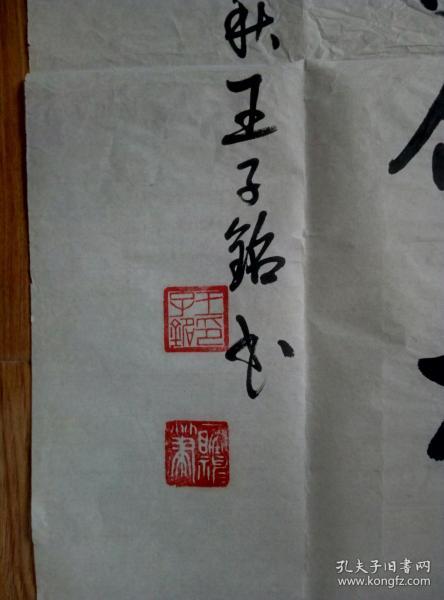 秋王子銘书
王印子銘
孔夫子旧书网
www.kongfz.com